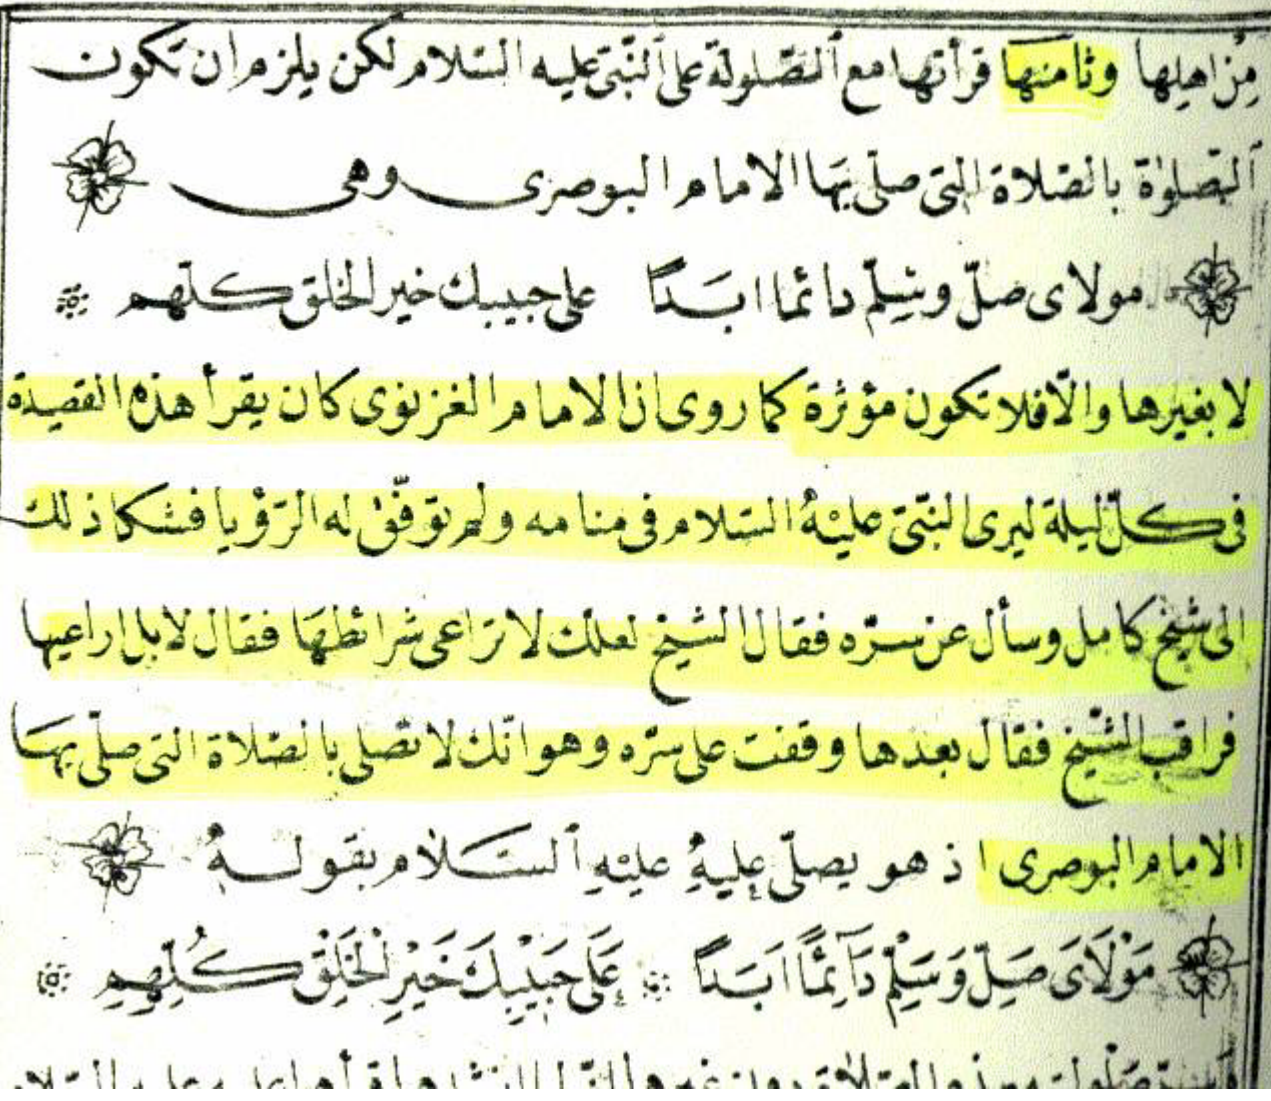 مِنْ اهلها وثامنها قرأتها مع ٱلصّلوة على ٱلنّبىّ عليه السّلام لكن يلزم ان تكون
ٱلصّلوٰة بالصّلاة التى صلّى بهَا الامام البوصرى وهى
مولاى صلّ وسَلِّم دائمًا ابَدًا على حبيبك خير الخلق كلّهم
لا بغيرها والّا فلا تكون مؤثرة كما روى ان الامام الغزنوى كان يقرأ هذه القصيدة
فى كلّ ليلة ليرى النبّى عليْهُ السّلام فى منامه ولم توفّق له الرّؤيا فشكا ذلك
الى شيخ كامل وسأل عن سرّه فقال الشيخ لعلك لا تراعى شرائطهَا فقال لا بل اراعيها
فراقب الشّيخ فقال بعدها وقفت على سرّه وهو انّك لا تصلى بالصّلاة التى صلّى بهَا
الامام البوصرى اذ هو يصلّى عليهِ عليْهِ ٱلسَّلام بقولهُ
مَوْلَاىَ صَلِّ وَسَلِّمْ دَآئِمًا اَبَدًا عَلَى حَبِيْبِكَ خَيْرِ الْخَلْقِ كُلِّهِمِ